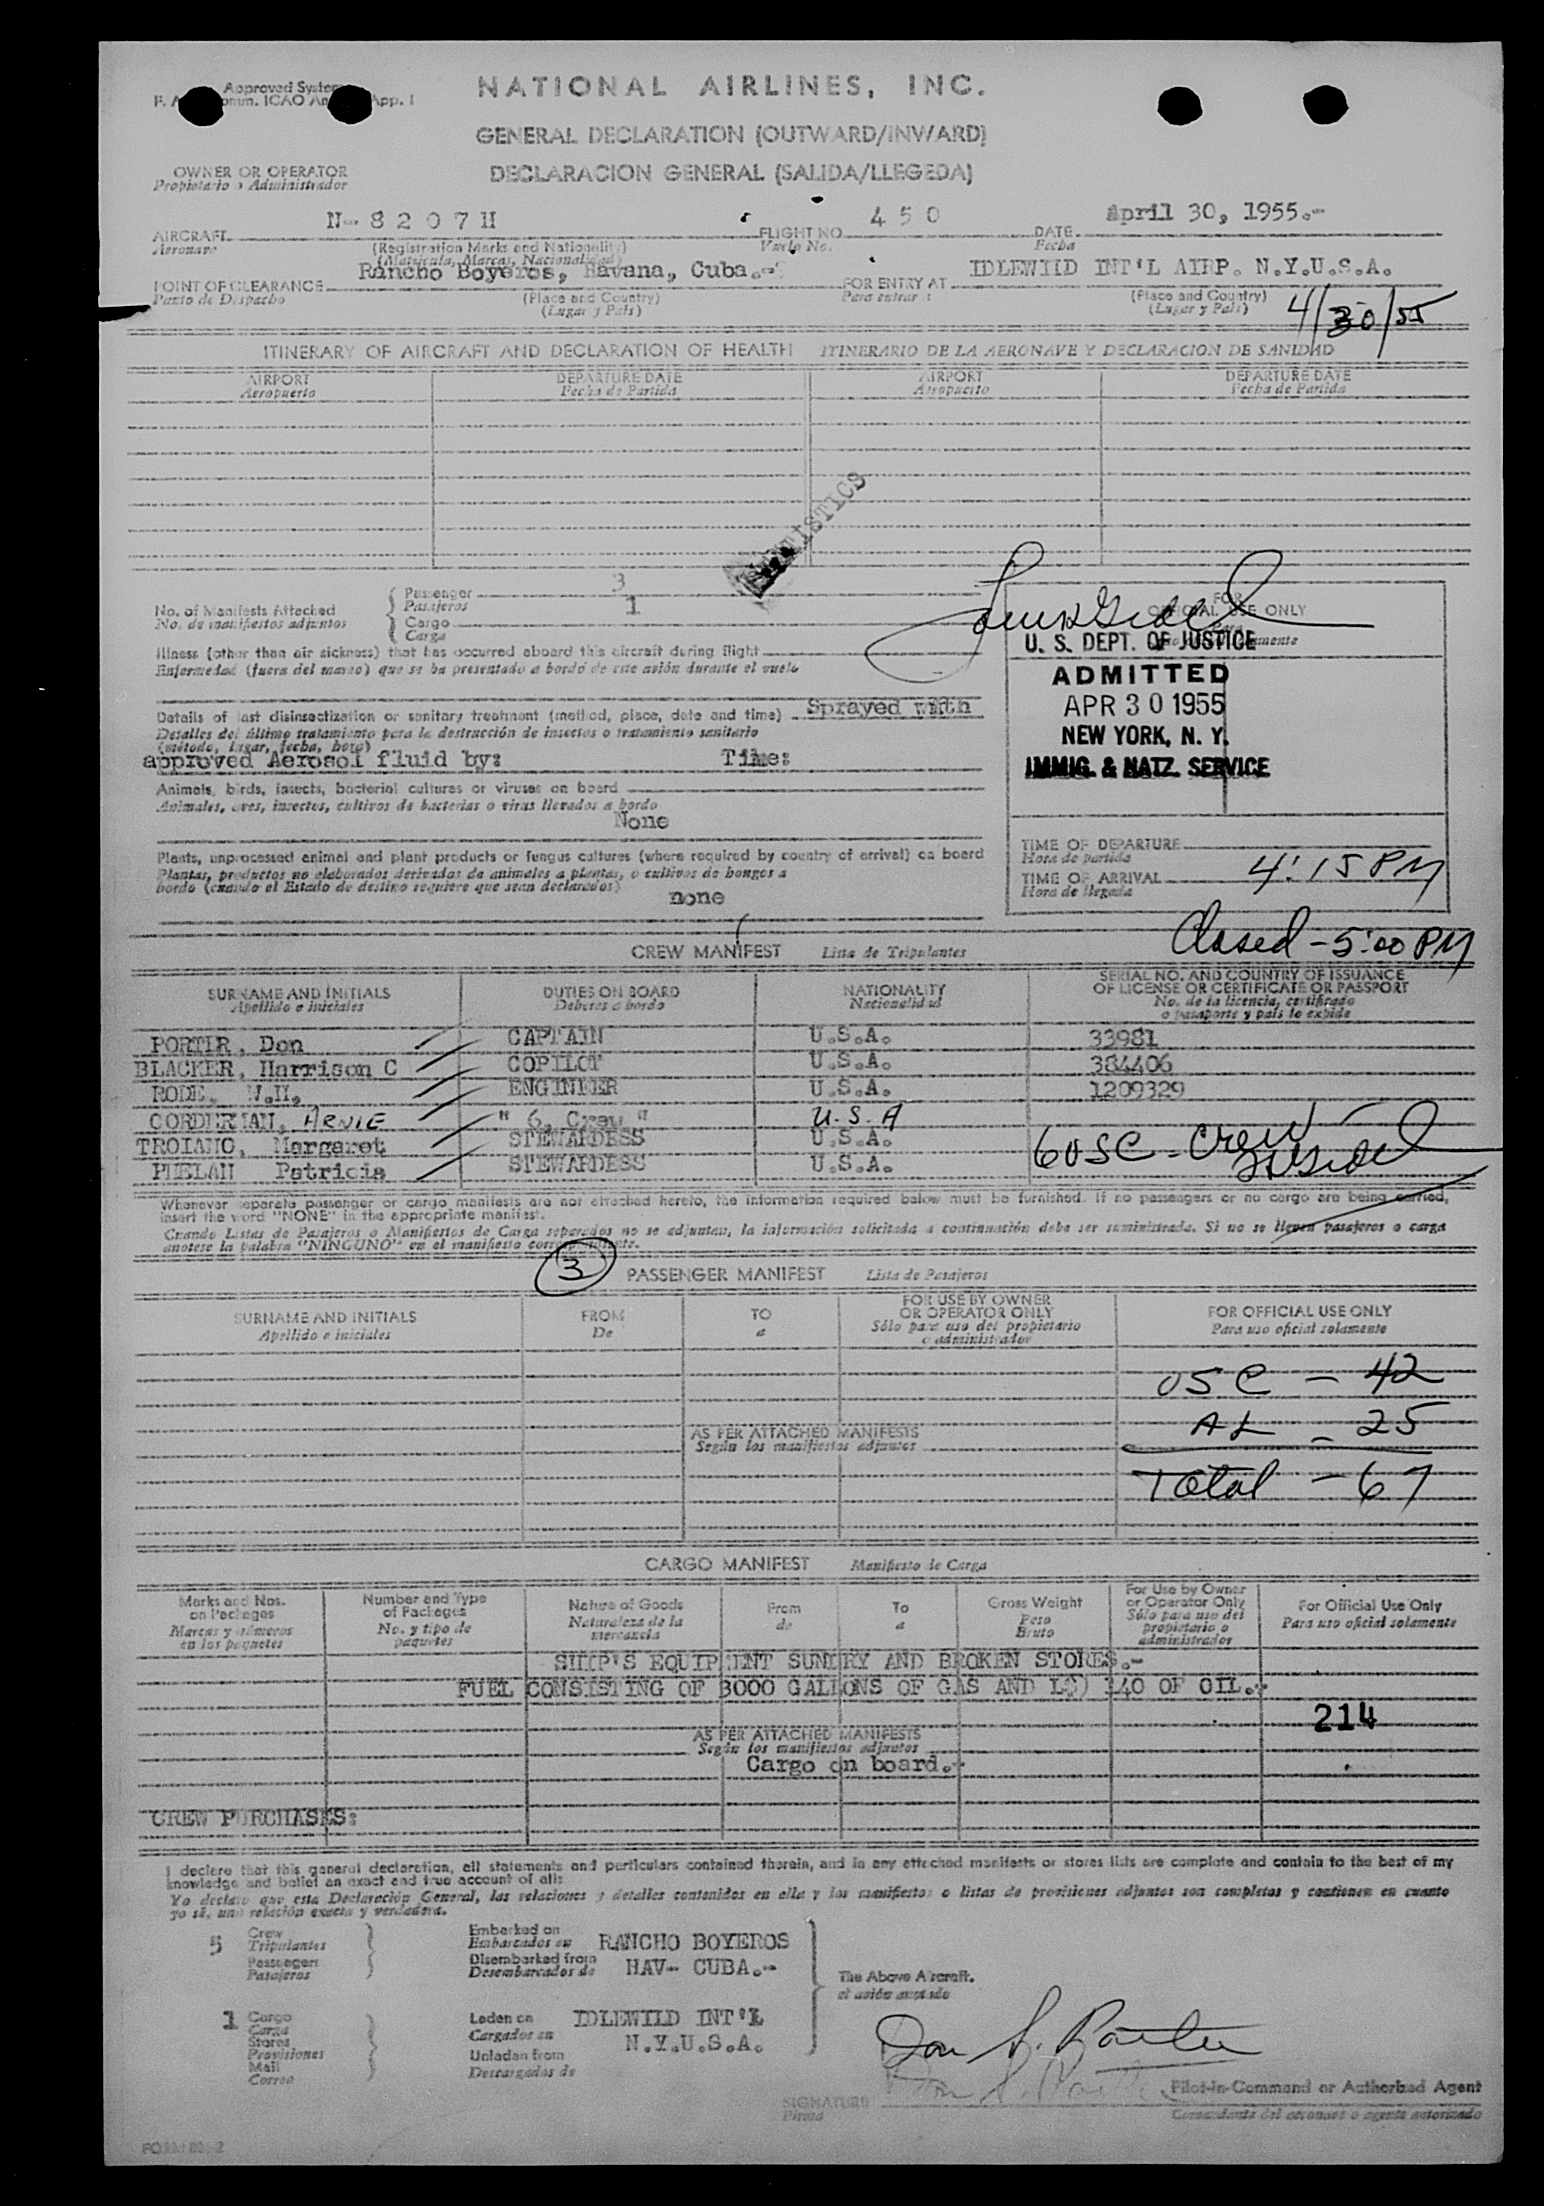 Approved System
NATIONAL AIRLINES, INC.
GENERAL DECLARATION (OUTWARD/INWARD)
DECLARACION GENERAL (SALIDA/LLEGEDA)
OWNER OR OPERATOR
Propietario o Administrador
AIRCRAFT N-8207H FLIGHT NO 450 DATE April 30, 1955.-
Aeronave (Registration Marks and Nationality) Vuelo No. Fecha
(Matricula, Marcas, Nacionalidad)
POINT OF CLEARANCE Rancho Boyeros, Havana, Cuba.- FOR ENTRY AT IDLEWILD INT'L AIRP. N.Y.U.S.A.
Punto de Despacho (Place and Country) Para entrar a (Place and Country)
(Lugar y Pais) (Lugar y Pais) 4/30/55
ITINERARY OF AIRCRAFT AND DECLARATION OF HEALTH ITINERARIO DE LA AERONAVE Y DECLARACION DE SANIDAD
AIRPORT DEPARTURE DATE AIRPORT DEPARTURE DATE
Aeropuerto Fecha de Partida Aeropuerto Fecha de Partida
STATISTICS
No. of Manifests Attached Passenger 3
No. de manifiestos adjuntos Pasajeros
Cargo 1
Carga
FOR
OFFICIAL USE ONLY
U. S. DEPT. OF JUSTICE
ADMITTED
APR 30 1955
NEW YORK, N. Y.
IMMIG. & NATZ. SERVICE
Illness (other than air sickness) that has occurred aboard this aircraft during flight
Enfermedad (fuera del mareo) que se ha presentado a bordo de este avión durante el vuelo
Details of last disinsectization or sanitary treatment (method, place, date and time) Sprayed with
Detalles del último tratamiento para la destrucción de insectos o tratamiento sanitario
(método, lugar, fecha, hora)
approved Aerosol fluid by: Time:
Animals, birds, insects, bacterial cultures or viruses on board
Animales, aves, insectos, cultivos de bacterias o virus llevados a bordo
None
Plants, unprocessed animal and plant products or fungus cultures (where required by country of arrival) on board
Plantas, productos no elaborados derivados de animales a plantas, o cultivos de hongos a
bordo (cuando el Estado de destino requiere que sean declarados)
none
TIME OF DEPARTURE
Hora de partida
TIME OF ARRIVAL 4:15 PM
Hora de llegada
Closed - 5:00 PM
CREW MANIFEST Lista de Tripulantes
SURNAME AND INITIALS DUTIES ON BOARD NATIONALITY SERIAL NO. AND COUNTRY OF ISSUANCE
Apellido e iniciales Deberes a bordo Nacionalidad OF LICENSE OR CERTIFICATE OR PASSPORT
No. de la licencia, certificado
o pasaporte y pais lo expide
PORTIR, Don CAPTAIN U.S.A. 33981
BLACKER, Harrison C COPILOT U.S.A. 384406
RODE, W.H. ENGINEER U.S.A. 1209329
CORDERMAN, ARNIE " 6, Crew " U.S.A
TROIANO, Margaret STEWARDESS U.S.A.
PHELAN Patricia STEWARDESS U.S.A.
6 OSC - Crew
Whenever separate passenger or cargo manifests are not attached hereto, the information required below must be furnished. If no passengers or no cargo are being carried,
insert the word "NONE" in the appropriate manifest.
Cuando Listas de Pasajeros o Manifiestos de Carga separados no se adjuntan, la información solicitada a continuación debe ser suministrada. Si no se lleven pasajeros o carga
anotese la palabra "NINGUNO" en el manifiesto correspondiente.
3 PASSENGER MANIFEST Lista de Pasajeros
SURNAME AND INITIALS FROM TO FOR USE BY OWNER FOR OFFICIAL USE ONLY
Apellido e iniciales De a OR OPERATOR ONLY Para uso oficial solamente
Sólo para uso del propietario
o administrador
OSC - 42
AL - 25
AS PER ATTACHED MANIFESTS
Según los manifiestos adjuntos
Total - 67
CARGO MANIFEST Manifiesto de Carga
Marks and Nos. Number and Type Nature of Goods From To Gross Weight For Use by Owner For Official Use Only
on Packages of Packages Naturaleza de la de a Peso or Operator Only Para uso oficial solamente
Marcas y números No. y tipo de mercancia Bruto Sólo para uso del
en los paquetes paquetes propietario o
administrador
SHIP'S EQUIPMENT SUNDRY AND BROKEN STORES.-
FUEL CONSISTING OF 3000 GALLONS OF GAS AND 140 OF OIL.-
214
AS PER ATTACHED MANIFESTS
Según los manifiestos adjuntos
Cargo on board.-
CREW PURCHASES:
I declare that this general declaration, all statements and particulars contained therein, and in any attached manifests or stores lists are complete and contain to the best of my
knowledge and belief an exact and true account of all:
Yo declaro que esta Declaración General, las relaciones y detalles contenidos en ella y los manifiestos o listas de provisiones adjuntos son completos y contienen en cuanto
yo sé, una relación exacta y verdadera.
5 Crew Embarked on RANCHO BOYEROS
Tripulantes Embarcados en
Passengers Disembarked from HAV- CUBA.-
Pasajeros Desembarcados de
The Above Aircraft.
el avión anotado
1 Cargo Laden on IDLEWILD INT'L
Carga Cargados en N.Y.U.S.A.
Stores
Provisiones Unladen from
Mail Descargados de
Correo
Don S. Porter
SIGNATURE Pilot-in-Command or Authorized Agent
Firma Comandante del aeronave o agente autorizado